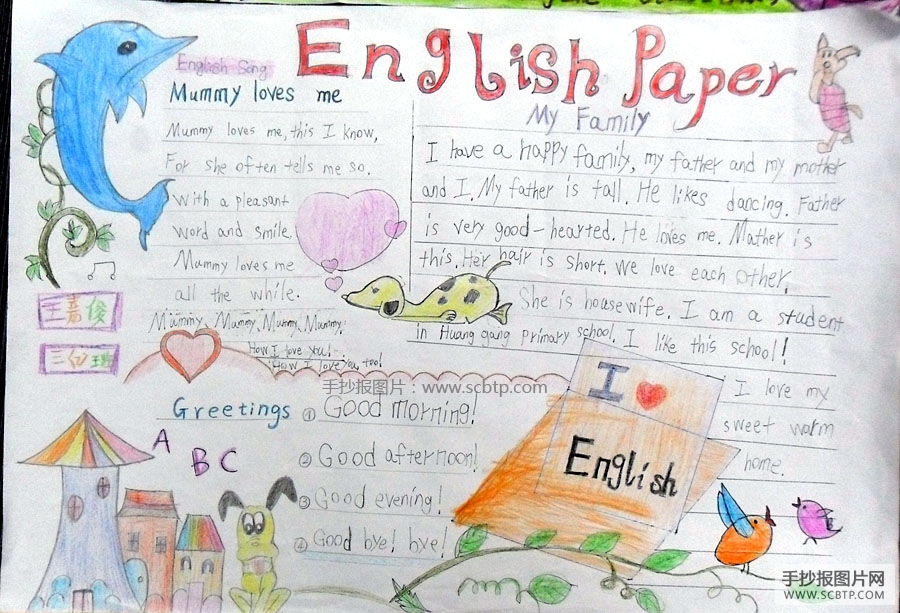 English Paper
English Song
Mummy loves me
Mummy loves me, this I know,
For she often tells me so.
With a pleasant
word and smile,
Mummy loves me
all the while.
Mummy, Mummy, Mummy, Mummy.
How I love you!
How I love you, too!
王嘉俊
My Family
I have a happy family, my father and my mother
and I. My father is tall. He likes dancing. Father
is very good-hearted. He loves me. Mather is
this. Her hair is short. We love each other.
She is housewife. I am a student
in Huang gang primary school. I like this school!
I love my
sweet warm
home.
手抄报图片：www.scbtp.com
Greetings
① Good morning!
② Good afternoon!
③ Good evening!
④ Good bye! bye!
A B C
I
English
手抄报图片网
WWW.SCBTP.COM